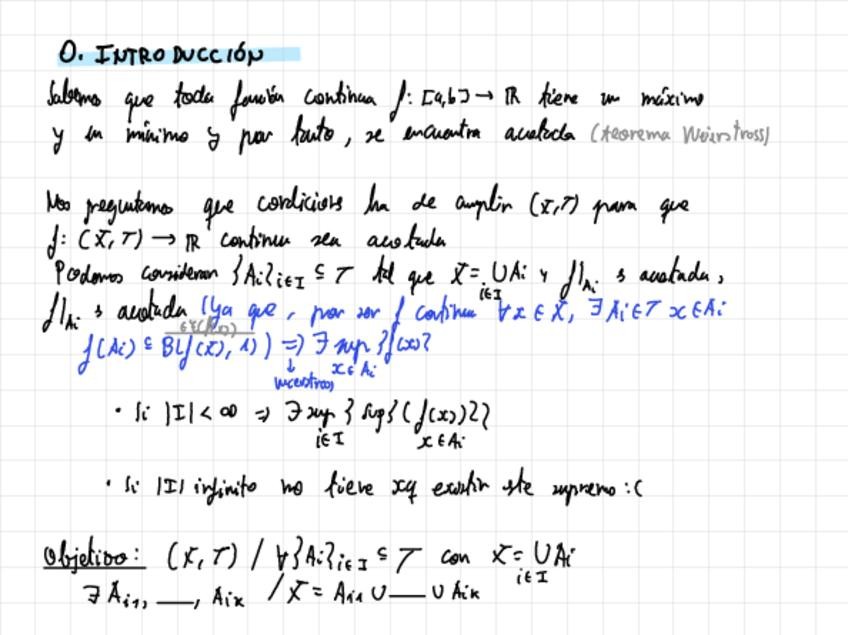 0. INTRODUCCIÓN
Sabemos que toda función continua f: [a,b] → ℝ tiene un máximo
y un mínimo y por tanto, se encuentra acotada (teorema Weierstrass)
Nos preguntamos que condiciones ha de cumplir (X,T) para que
f: (X,T) → ℝ continua sea acotada
Podemos considerar {Ai}i∈I ⊆ T tal que X = ∪ Ai y f|Ai s acotada,
i∈I
f|Ai s acotada (Ya que, por ser f continua ∀x ∈ X, ∃Ai∈T x∈Ai
f(Ai) ⊆ B(f(x), 1)) ⇒ ∃ sup {f(x)}
x∈Ai
• Si |I| < ∞ ⇒ ∃ sup { sup{(f(x))}}
i∈I x∈Ai
• Si |I| infinito no tiene xq existir este supremo :(
Objetivo: (X,T) / ∀{Ai}i∈I ⊆ T con X = ∪ Ai
i∈I
∃ Ai1, __, Aik / X = Ai1 ∪ __ ∪ Aik